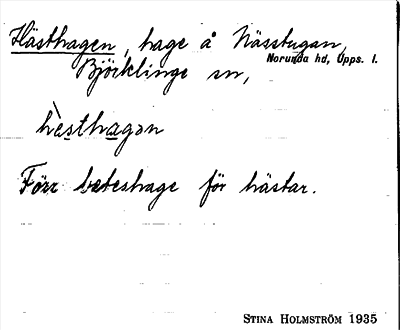 Hästhagen, hage å Nässtugan,
Norunda hd, Upps. l.
Björklinge sn,
hèsthagən
Förr beteshage för hästar.
STINA HOLMSTRÖM 1935